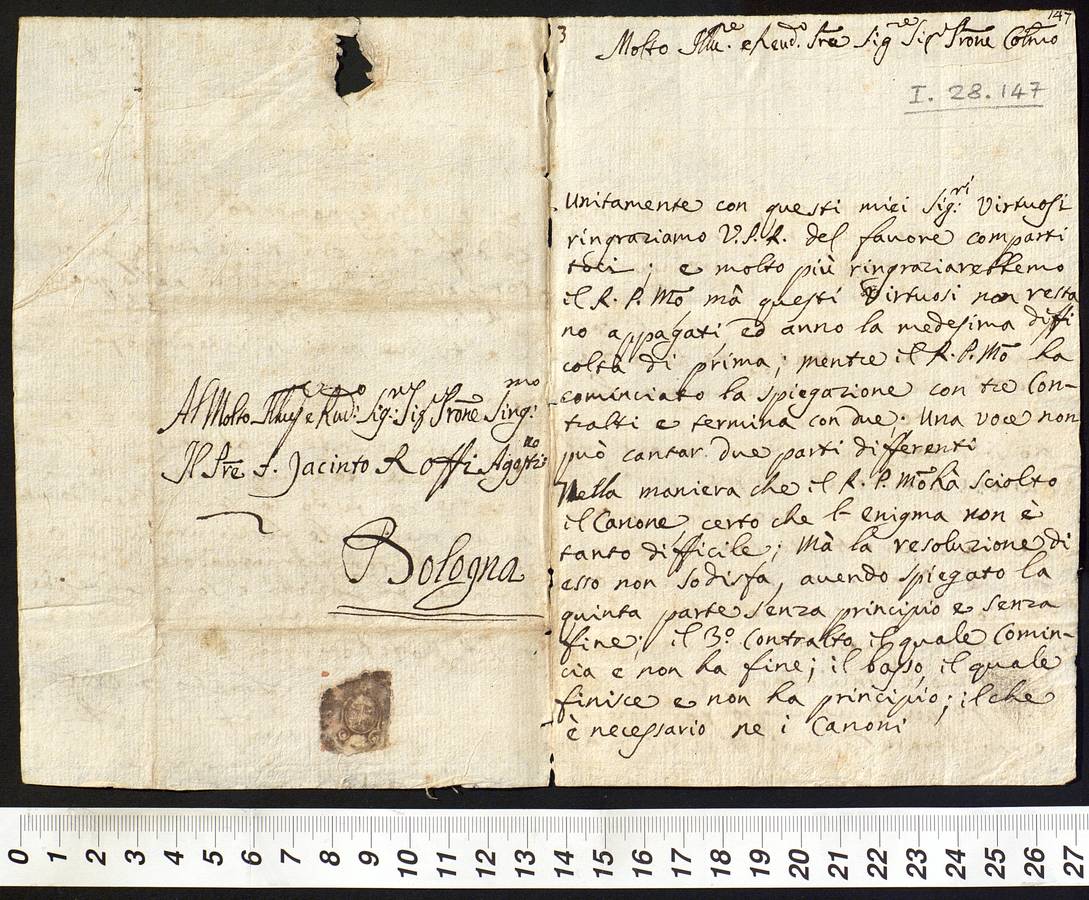 Al Molto Illre e Revdo: Sigr: Sigr Prone Singmo:
Il Pre f. Jacinto Roffi Agostno:
Bologna
3
147
Molto Illre. e Revdo. Pre Sigre Sigr Prone Colmo
I. 28. 147
Unitamente con questi miei Sigri: Virtuosi
ringraziamo V.P.R. del favore comparti
toci; e molto più ringraziarebbemo
il R. P. Mo mà questi Virtuosi non resta
no appagati, ed anno la medesima diffi
coltà di prima; mentre il R. P. Mo ha
cominciato la spiegazione con tre Con-
tralti e termina con due; Una voce non
può cantar due parti differenti
Nella maniera che il R. P. Mo ha sciolto
il Canone certo che l enigma non è
tanto difficile; Mà la resoluzione di
esso non sodisfa, avendo spiegato la
quinta parte senza principio e senza
fine; il 3o. Contralto il quale Comin-
cia e non ha fine; il basso, il quale
finisce e non ha principio; il che
è necessario ne i Canoni
0 1 2 3 4 5 6 7 8 9 10 11 12 13 14 15 16 17 18 19 20 21 22 23 24 25 26 27